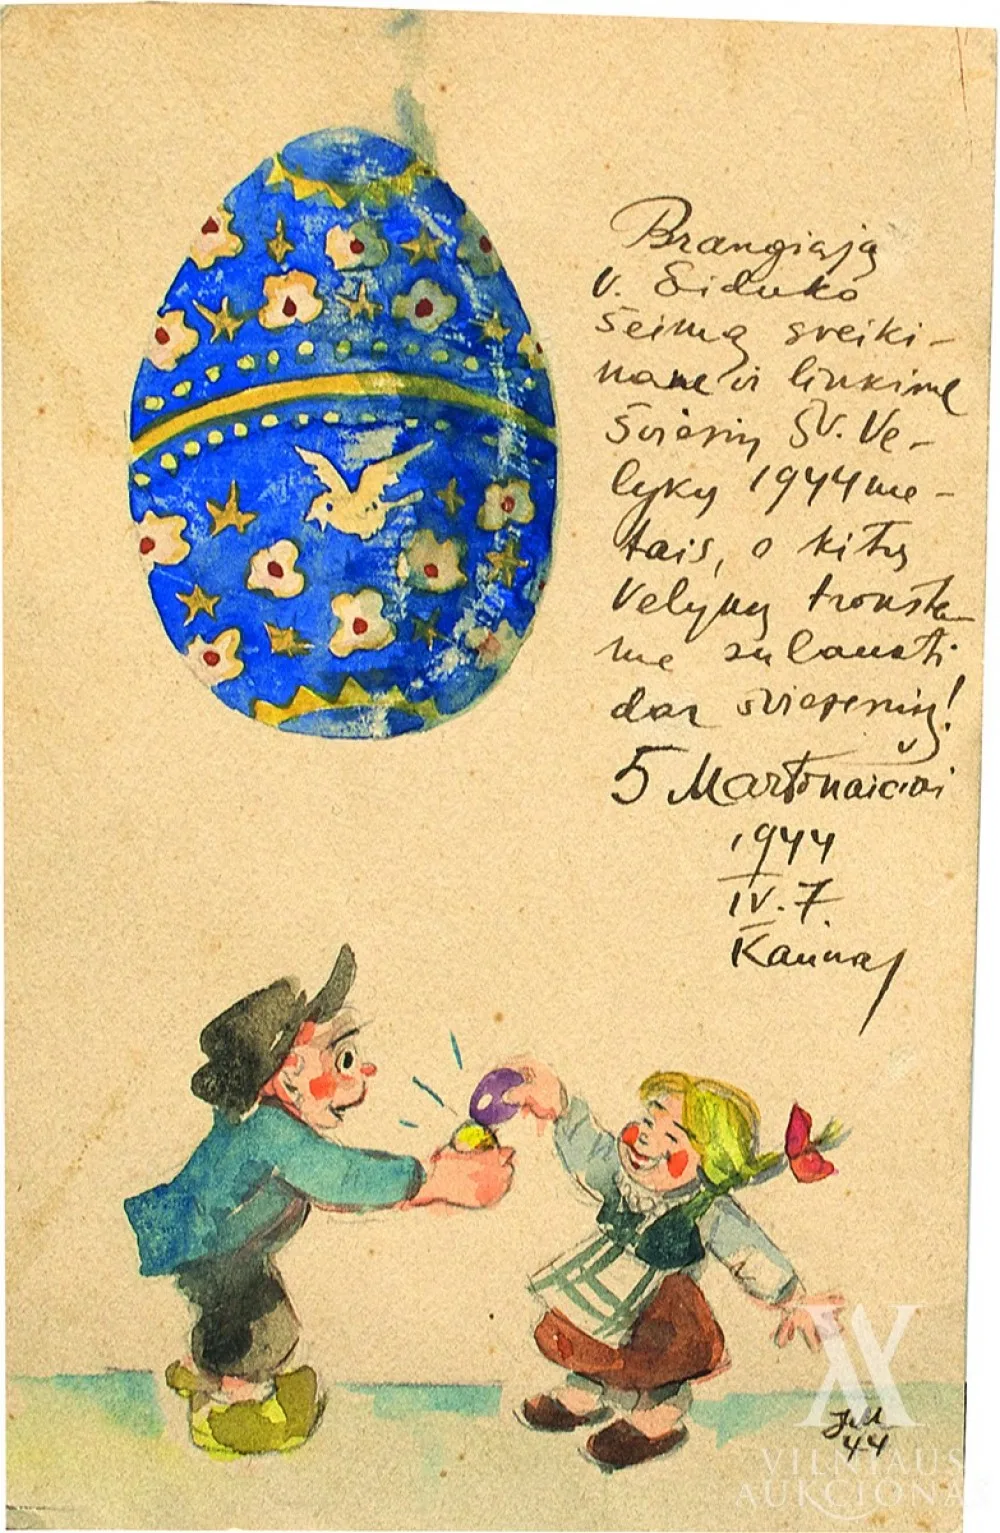 Brangiąją
V. Siduko
šeimą sveiki-
name ir linkime
šviesių Šv. Ve-
lykų 1944 me-
tais, o kitų
Velykų trokšta-
me sulaukti
dar šviesesnių!
5 Martonaičiai
1944
IV. 7.
Kaunas
J.M.
44
VILNIAUS
AUKCIONA